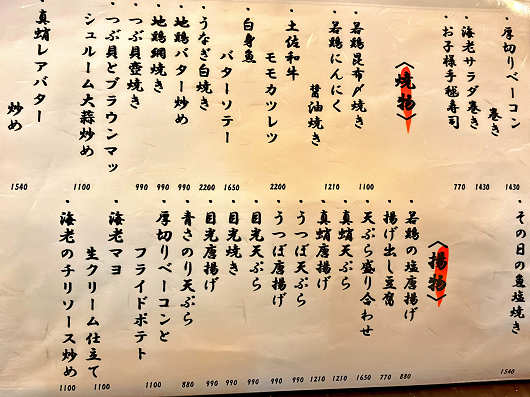 ・厚切りベーコン
巻き 1430
・海老サラダ巻き 1430
・お子様手毬寿司 770
〈焼物〉
・若鶏昆布〆焼き 1100
・若鶏にんにく
醤油焼き 1210
・土佐和牛
モモカツレツ 2200
・白身魚
バターソテー 1650
・うなぎ白焼き 2200
・地鶏バター炒め 990
・地鶏網焼き 990
・つぶ貝壺焼き 990
・つぶ貝とブラウンマッ
シュルーム大蒜炒め 1100
・真蛸レアバター
炒め 1540
・その日の魚塩焼き 1540
〈揚物〉
・若鶏の塩唐揚げ 880
・揚げ出し豆腐 770
・天ぷら盛り合わせ 1650
・真蛸天ぷら 1210
・真蛸唐揚げ 1210
・うつぼ天ぷら 990
・うつぼ唐揚げ 990
・目光天ぷら 990
・目光焼き 990
・目光唐揚げ 990
・青さのり天ぷら 880
・厚切りベーコンと
フライドポテト 1100
・海老マヨ
生クリーム仕立て 1100
・海老のチリソース炒め 1100